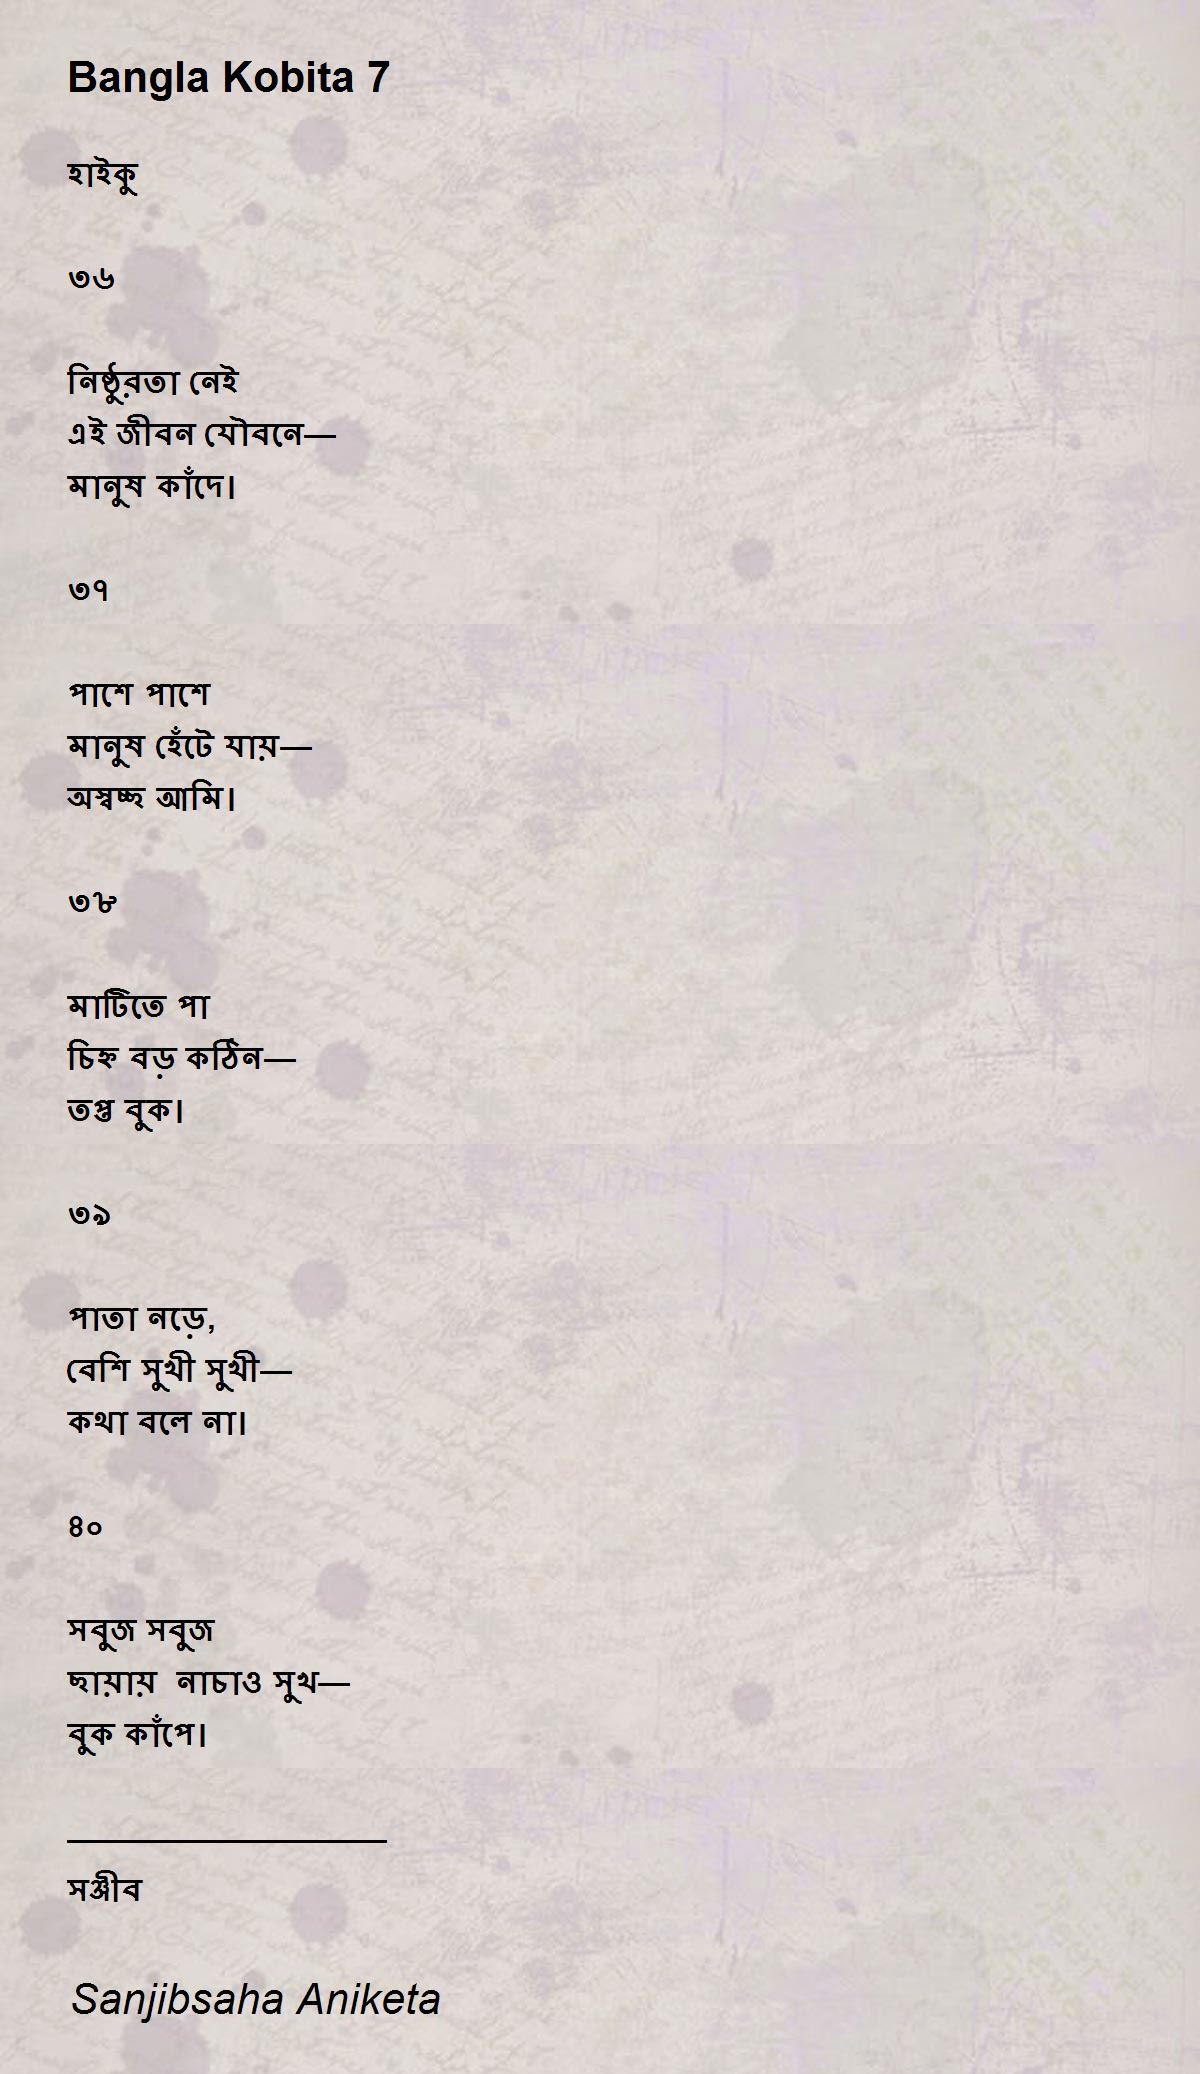 Bangla Kobita 7
হাইকু
৩৬
নিষ্ঠুরতা নেই
এই জীবন যৌবনে—
মানুষ কাঁদে।
৩৭
পাশে পাশে
মানুষ হেঁটে যায়—
অস্বচ্ছ আমি।
৩৮
মাটিতে পা
চিহ্ন বড় কঠিন—
তপ্ত বুক।
৩৯
পাতা নড়ে,
বেশি সুখী সুখী—
কথা বলে না।
৪০
সবুজ সবুজ
ছায়ায় নাচাও সুখ—
বুক কাঁপে।
সঞ্জীব
Sanjibsaha Aniketa